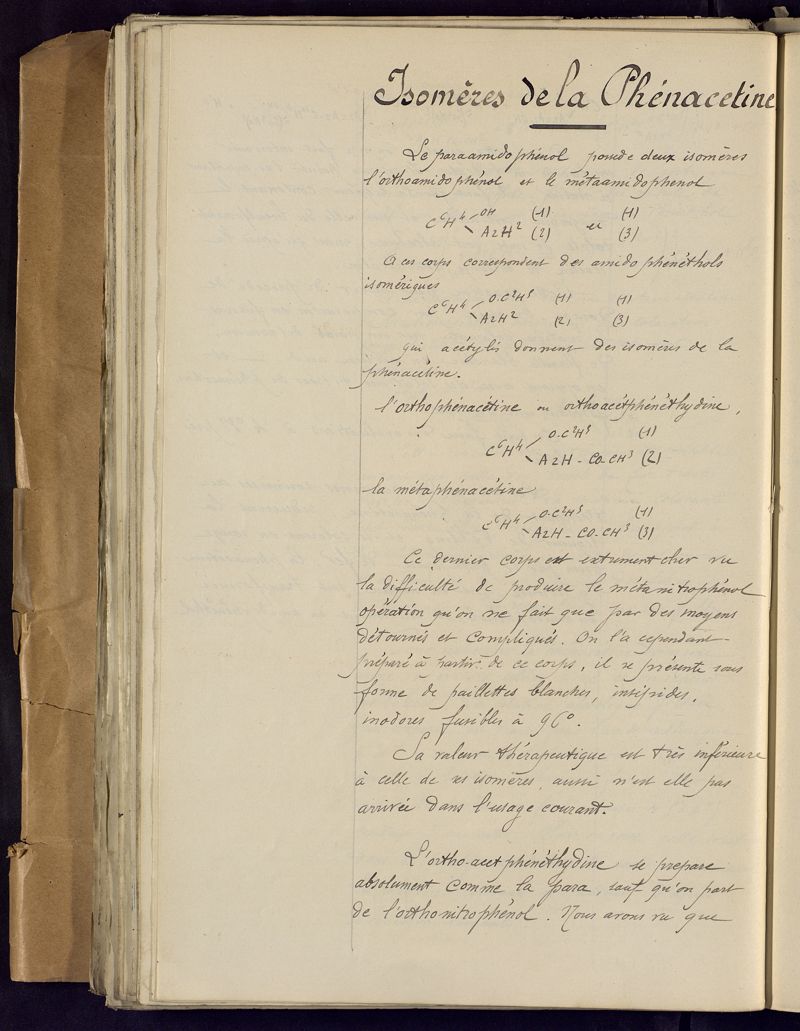 Isomères de la Phénacetine
Le paraamidophénol possède deux isomères
l'orthoamidophénol et le métaamidophenol
C⁶H⁴ OH (1) (1)
AzH² (2) et (3)
A ces corps correspondent des amidophénéthols
isomériques
C⁶H⁴ O-C²H⁵ (1) (1)
AzH² (2) (3)
qui acétylés donnent des isomères de la
phénacétine.
l'orthophénacétine ou orthoacétphénéthydine,
C⁶H⁴ O-C²H⁵ (1)
AzH-CO-CH³ (2)
la métaphénacétine
C⁶H⁴ O-C²H⁵ (1)
AzH-CO-CH³ (3)
Ce dernier corps est cher vu
la difficulté de produire le métanitrophénol
opération qu'on ne fait que par des moyens
détournés et compliqués. On l'a cependant
préparé à partir de ce corps, il se présente sous
forme de paillettes blanches, insipides,
inodores fusibles à 96°.
Sa valeur thérapeutique est très inférieure
à celle de ses isomères, aussi n'est elle pas
arrivée dans l'usage courant.
L'ortho-acetphénéthydine se prepare
absolument comme la para, sauf qu'on part
de l'orthonitrophénol. Nous avons vu que